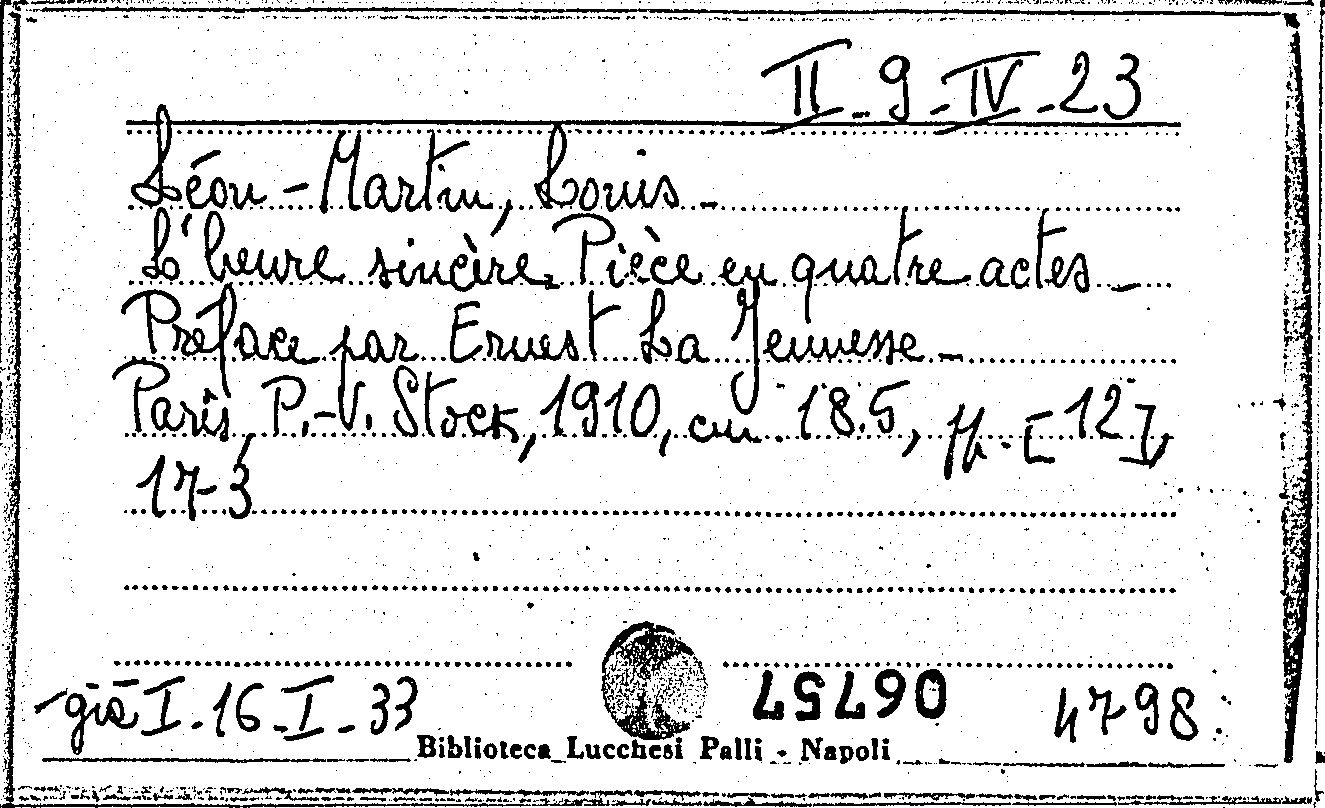 II-9-IV-23
Léon-Martin, Louis -
L'heure sincère. Pièce en quatre actes -
Préface par Ernest La Jeunesse -
Paris, P.-V. Stock, 1910, cm. 18.5, pp. [12],
173
già I-16-I-33
06757
4798
Biblioteca Lucchesi Palli - Napoli